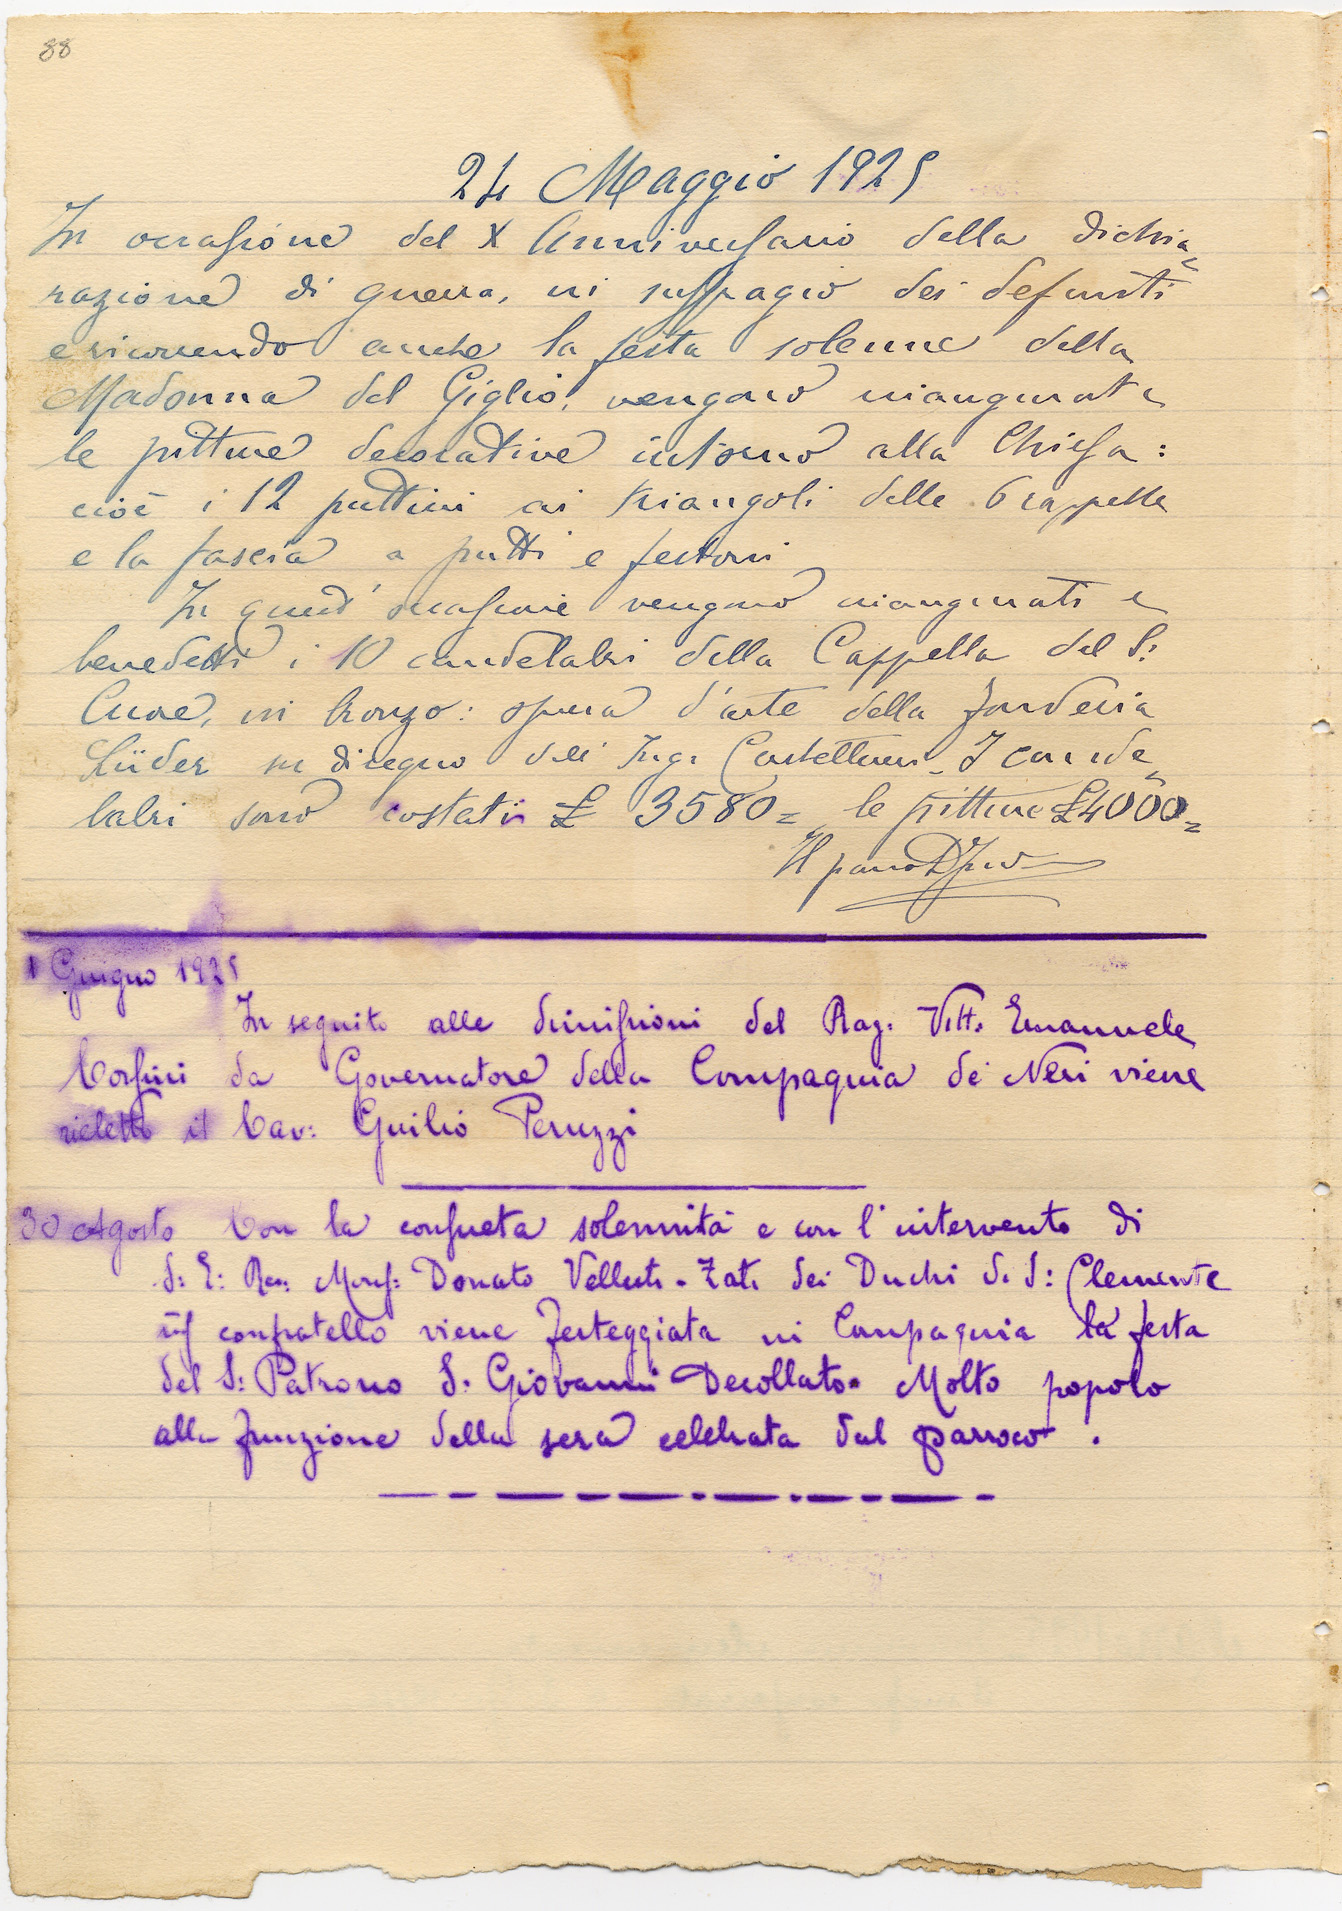 88
24 Maggio 1925
In occasione del X Anniversario della dichia=
razione di guerra, in suffragio dei defunti
e ricorrendo anche la festa solenne della
Madonna del Giglio, vengono inaugurate
le pitture decorative intorno alla Chiesa:
cioè i 12 puttini ai triangoli delle 6 cappelle
e la fascia a putti e festoni
In quest'occasione vengono inaugurati e
benedetti i 10 candelabri della Cappella del S:
Cuore, in bronzo: opera d'arte della fonderia
Lüder su disegno dell' Ing: Castellucci_ I cande=
labri sono costati £ 3580= le pitture £ 4000=
Il parroco
1 Giugno 1925
In seguito alle dimissioni del Rag: Vitt: Emanuele
Corsini da Governatore della Compagnia de Neri viene
rieletto il Cav: Guilio Peruzzi
30 Agosto Con la consueta solennità e con l'intervento di
S: E: Rev: Mons: Donato Velluti-Zati dei Duchi di S: Clemente
confratello viene festeggiata in Compagnia la festa
del S: Patrono S: Giovanni Decollato= Molto popolo
alla funzione della sera celebrata dal parroco.